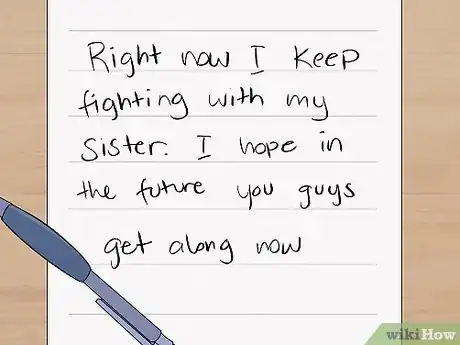 Right now I keep
fighting with my
sister. I hope in
the future you guys
get along now
wikiHow